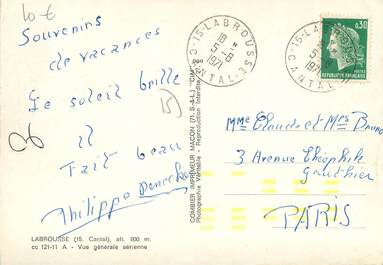 10 €
Souvenirs
de vacances
Le soleil brille
Il
Fait beau
Philippe
15
LABROUSSE (15. Cantal), alt. 800 m.
cc 121-11 A - Vue générale aérienne
COMBIER IMPRIMEUR MACON (71, S.-&-L.) "CIM"
Photographie Véritable - Reproduction Interdite
15-LABROUSSE
CANTAL
18 H
5-8
1971
15-LABROUSSE
CANTAL
1971
0,30
REPUBLIQUE FRANÇAISE
POSTES
Mme Claude et Mrs
3 Avenue Théophile
Gauthier
PARIS